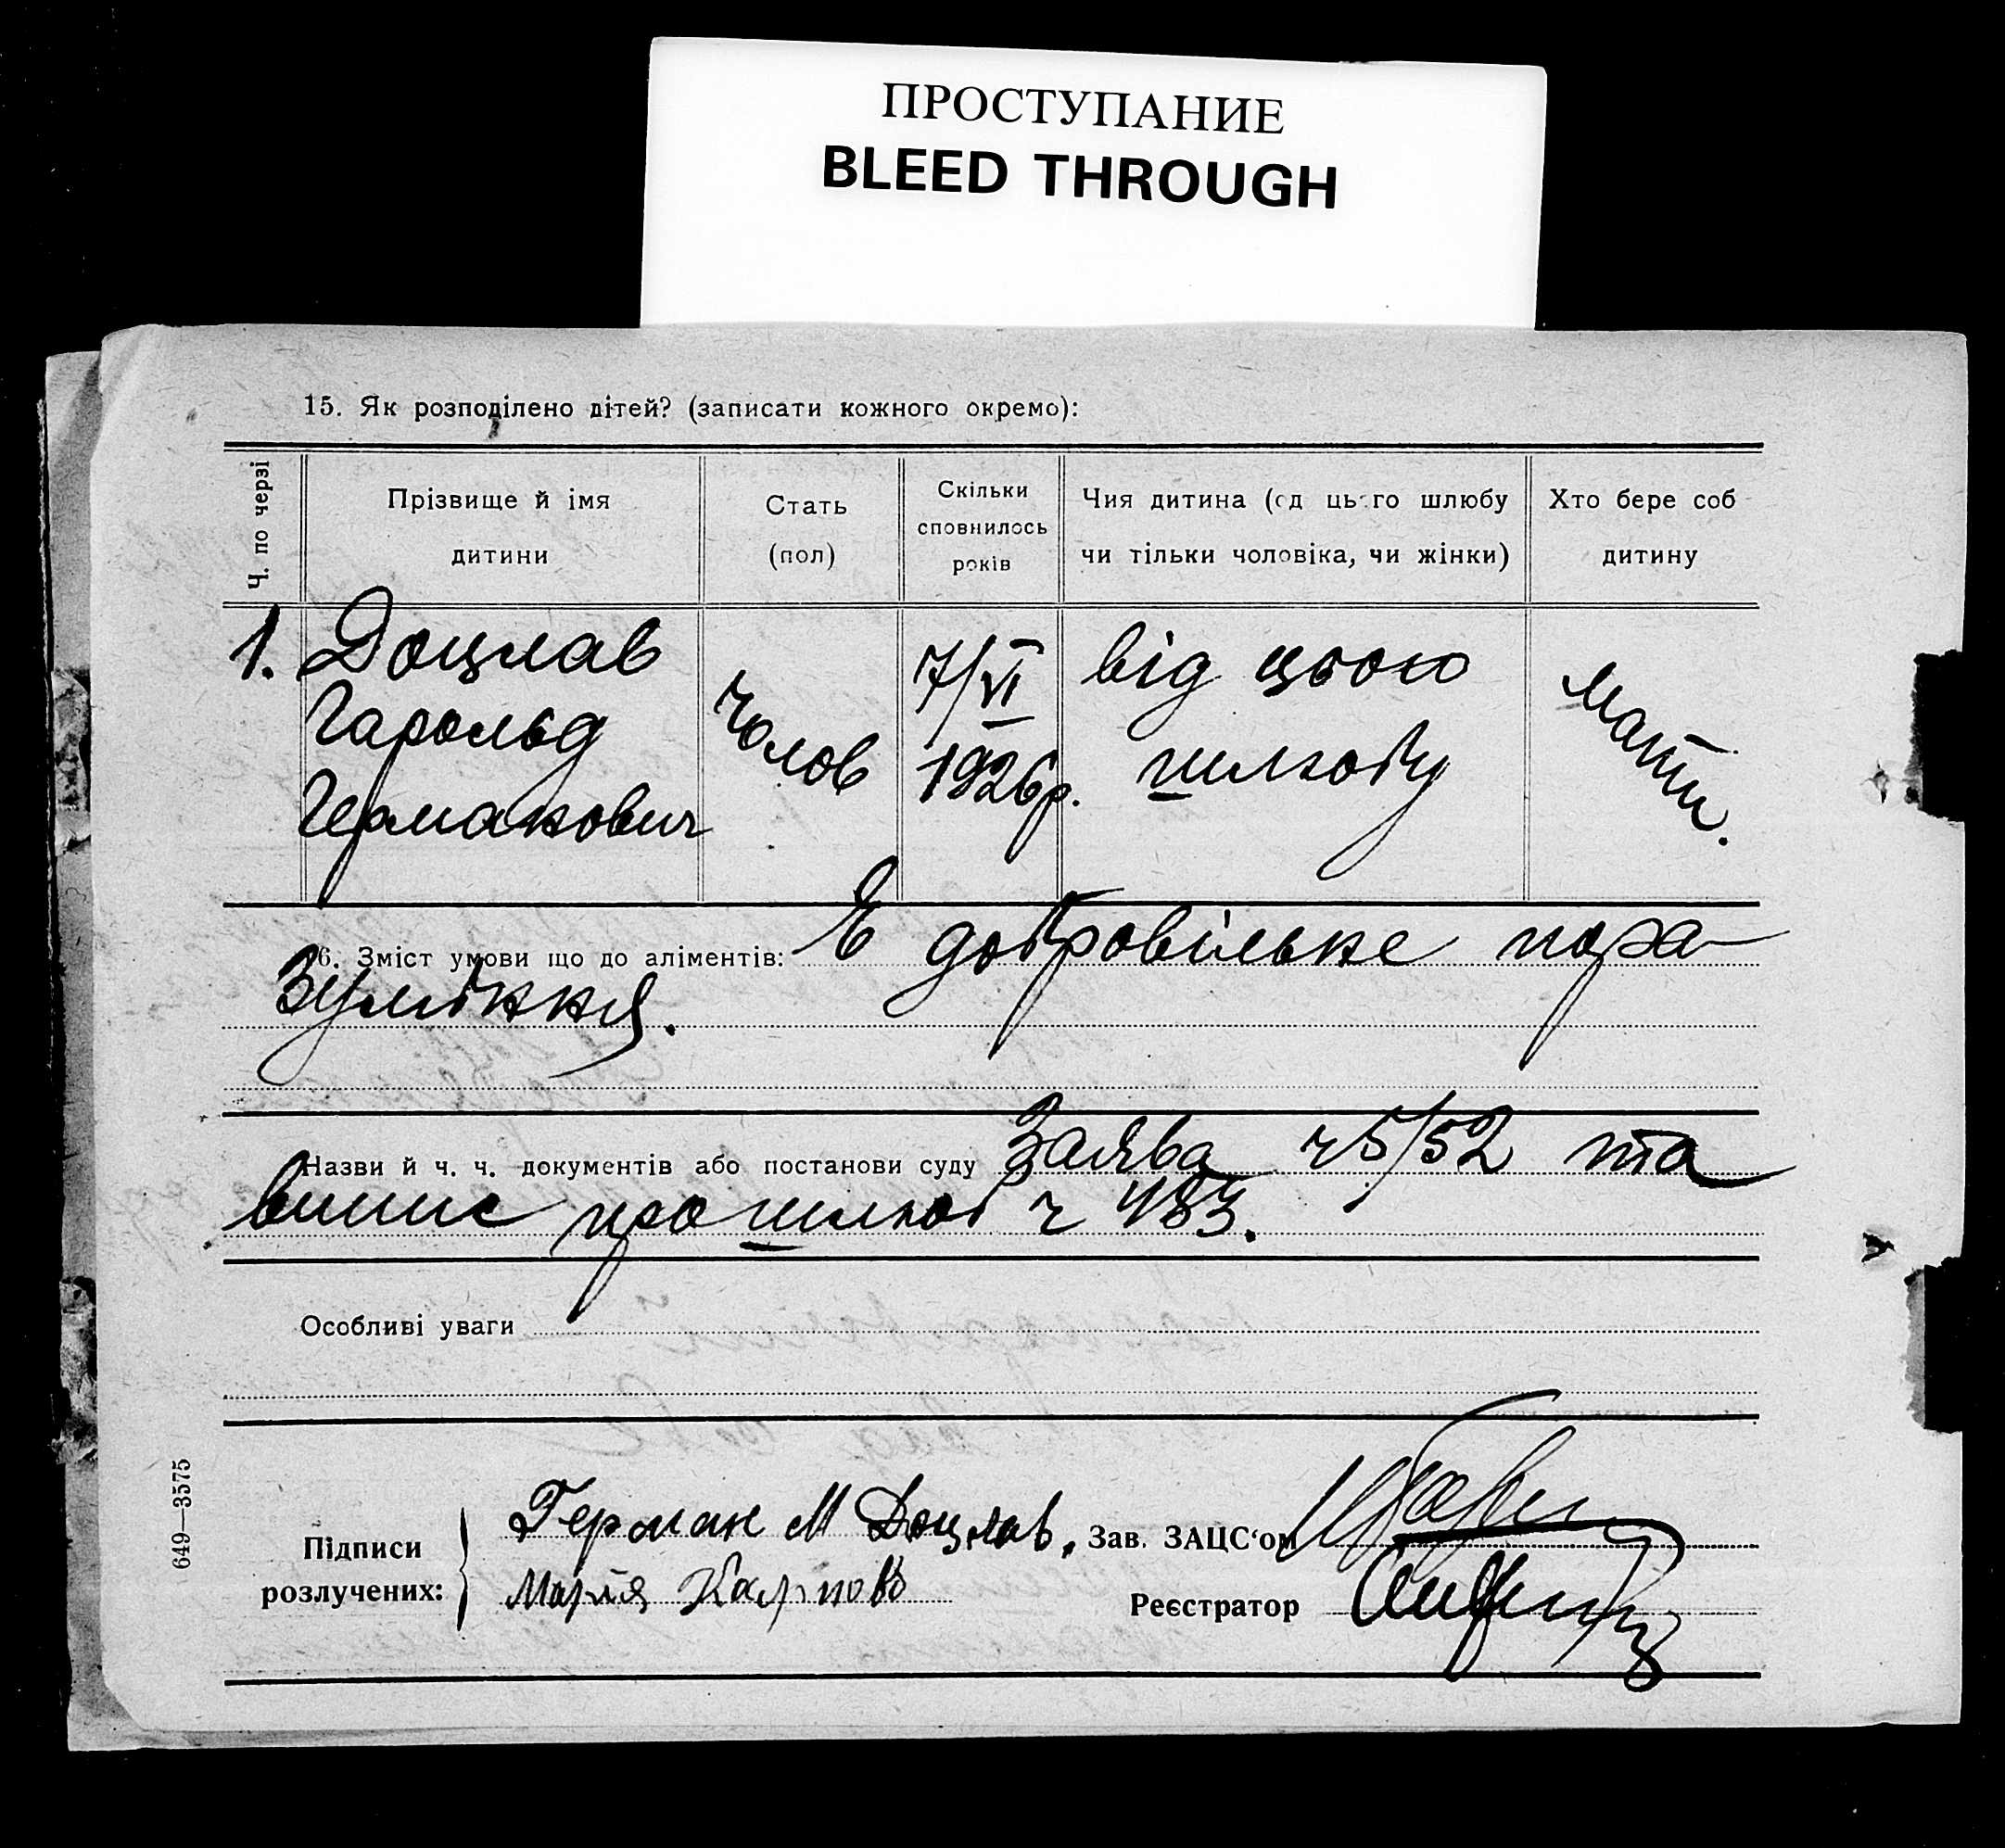 ПРОСТУПАНИЕ
BLEED THROUGH
15. Як розподілено дітей? (записати кожного окремо):
Ч. по черзі
Прізвище й імя
дитини
Стать
(пол)
Скільки
сповнилось
років
Чия дитина (од цього шлюбу
чи тільки чоловіка, чи жінки)
Хто бере соб
дитину
1.
Доцлав
Гарольд
Германович
Чолов
7/VI
1926р.
від цього
шлюбу
мати.
16. Зміст умови що до аліментів: Є добровільне пора-
зуміння.
Назви й ч. ч. документів або постанови суду Заява ч 5/52 та
випис про шлюб ч 483.
Особливі уваги
649—3575
Підписи
розлучених:
Герман М Доцлав.
Марія
Зав. ЗАЦС'ом
Реєстратор